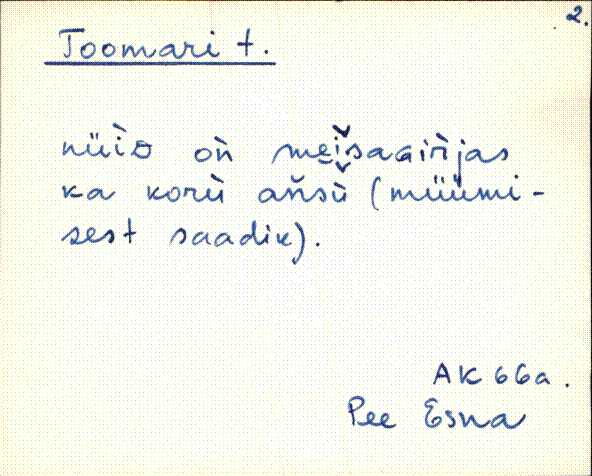 2.
Toomari t.
nüìd on̆ meiš̬saaiřjas
ka korù ańsù (müümi-
sest saadik).
AK 66a.
Pee Esna